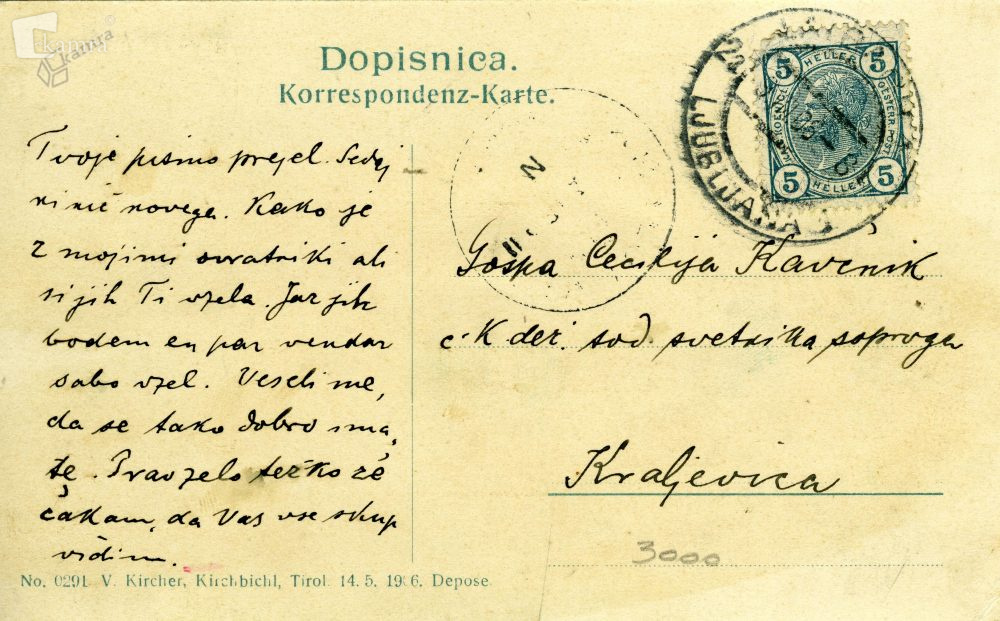 kamra
Dopisnica.
Korrespondenz-Karte.
5 HELLER 5
5 HELLER 5
LJUBLJANA
Tvoje pismo prejel. Sedaj
ni nič novega. Kako je
z mojimi ovratniki ali
si jih Ti vzela. Jaz jih
bodem en par vendar
sabo vzel. Veseli me,
da se tako dobro ima,
te. Prav zelo težko že
čakam, da Vas vse skup
vidim.
Gospa Cecilija Kavčnik
c. K. dež. sod. svetnika soproga
Kraljevica
3000
No. 0291 V. Kircher, Kirchbichl, Tirol. 14. 5. 1906. Depose.